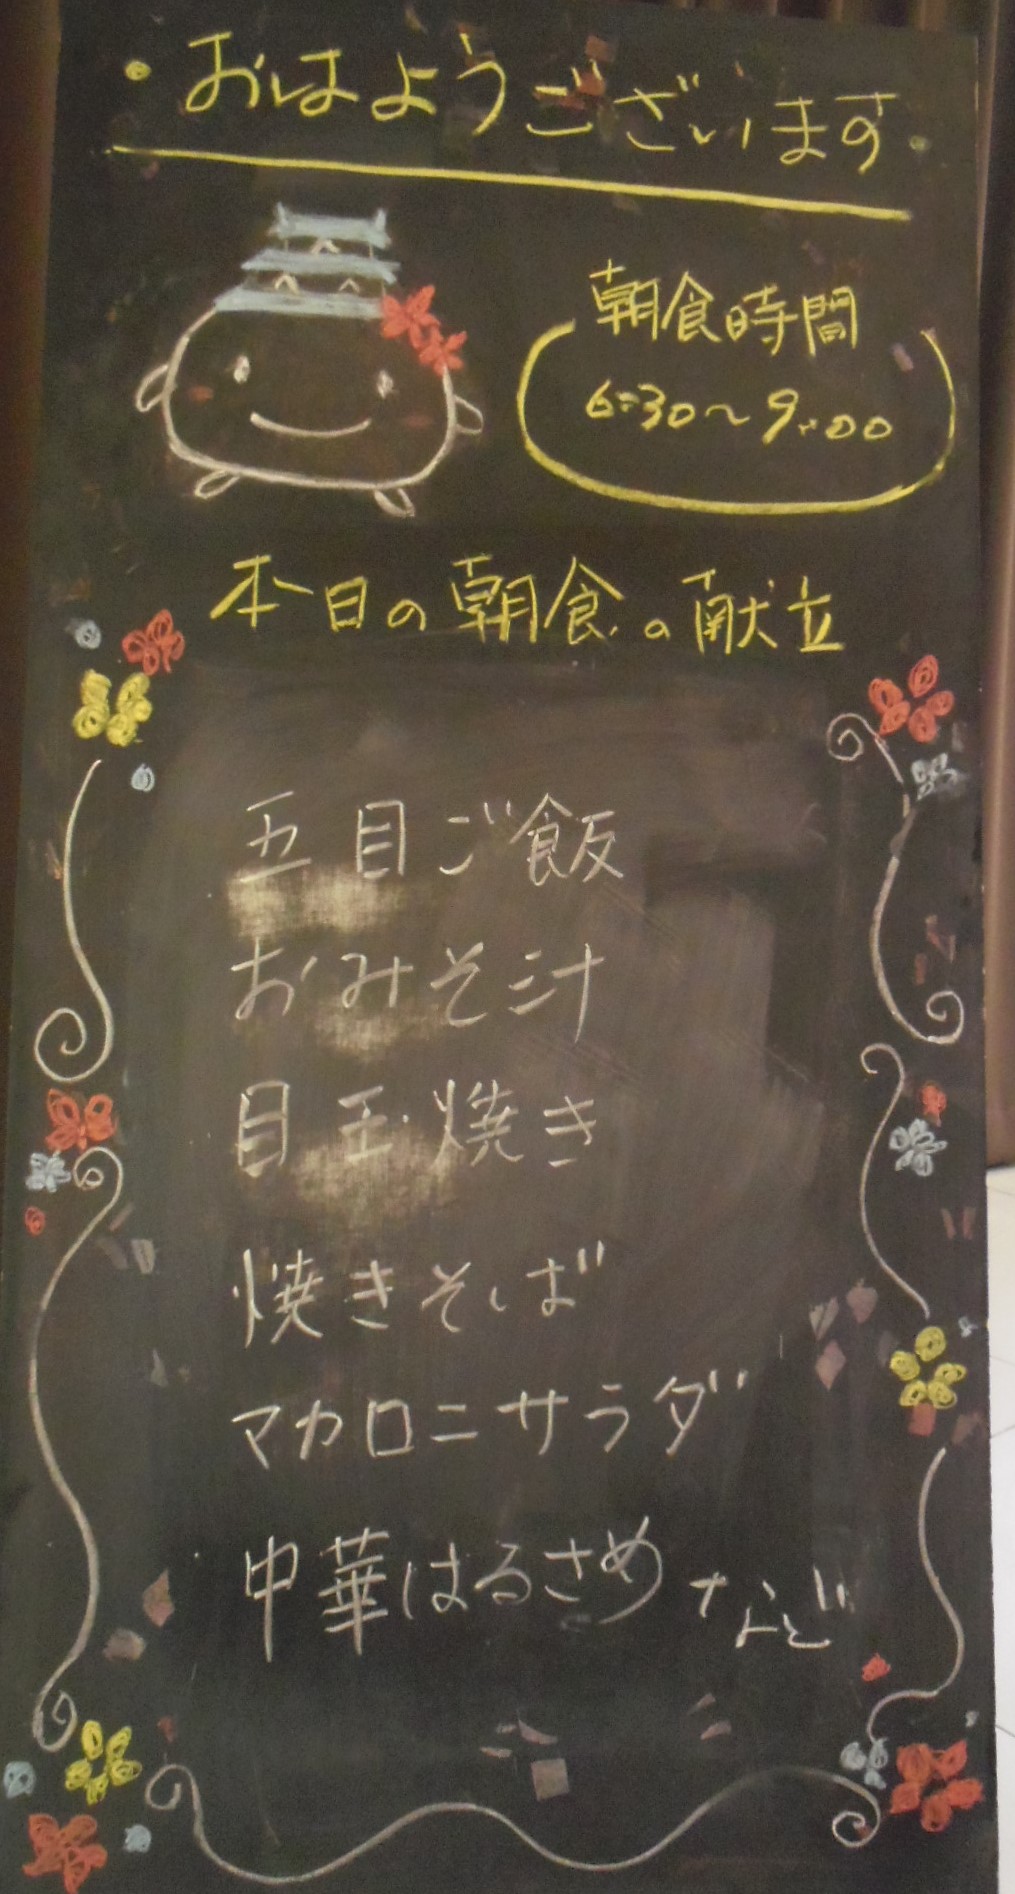 ・おはようございます・
朝食時間
6:30～9:00
本日の朝食の献立
五目ご飯
おみそ汁
目玉焼き
焼きそば
マカロニサラダ
中華はるさめ など